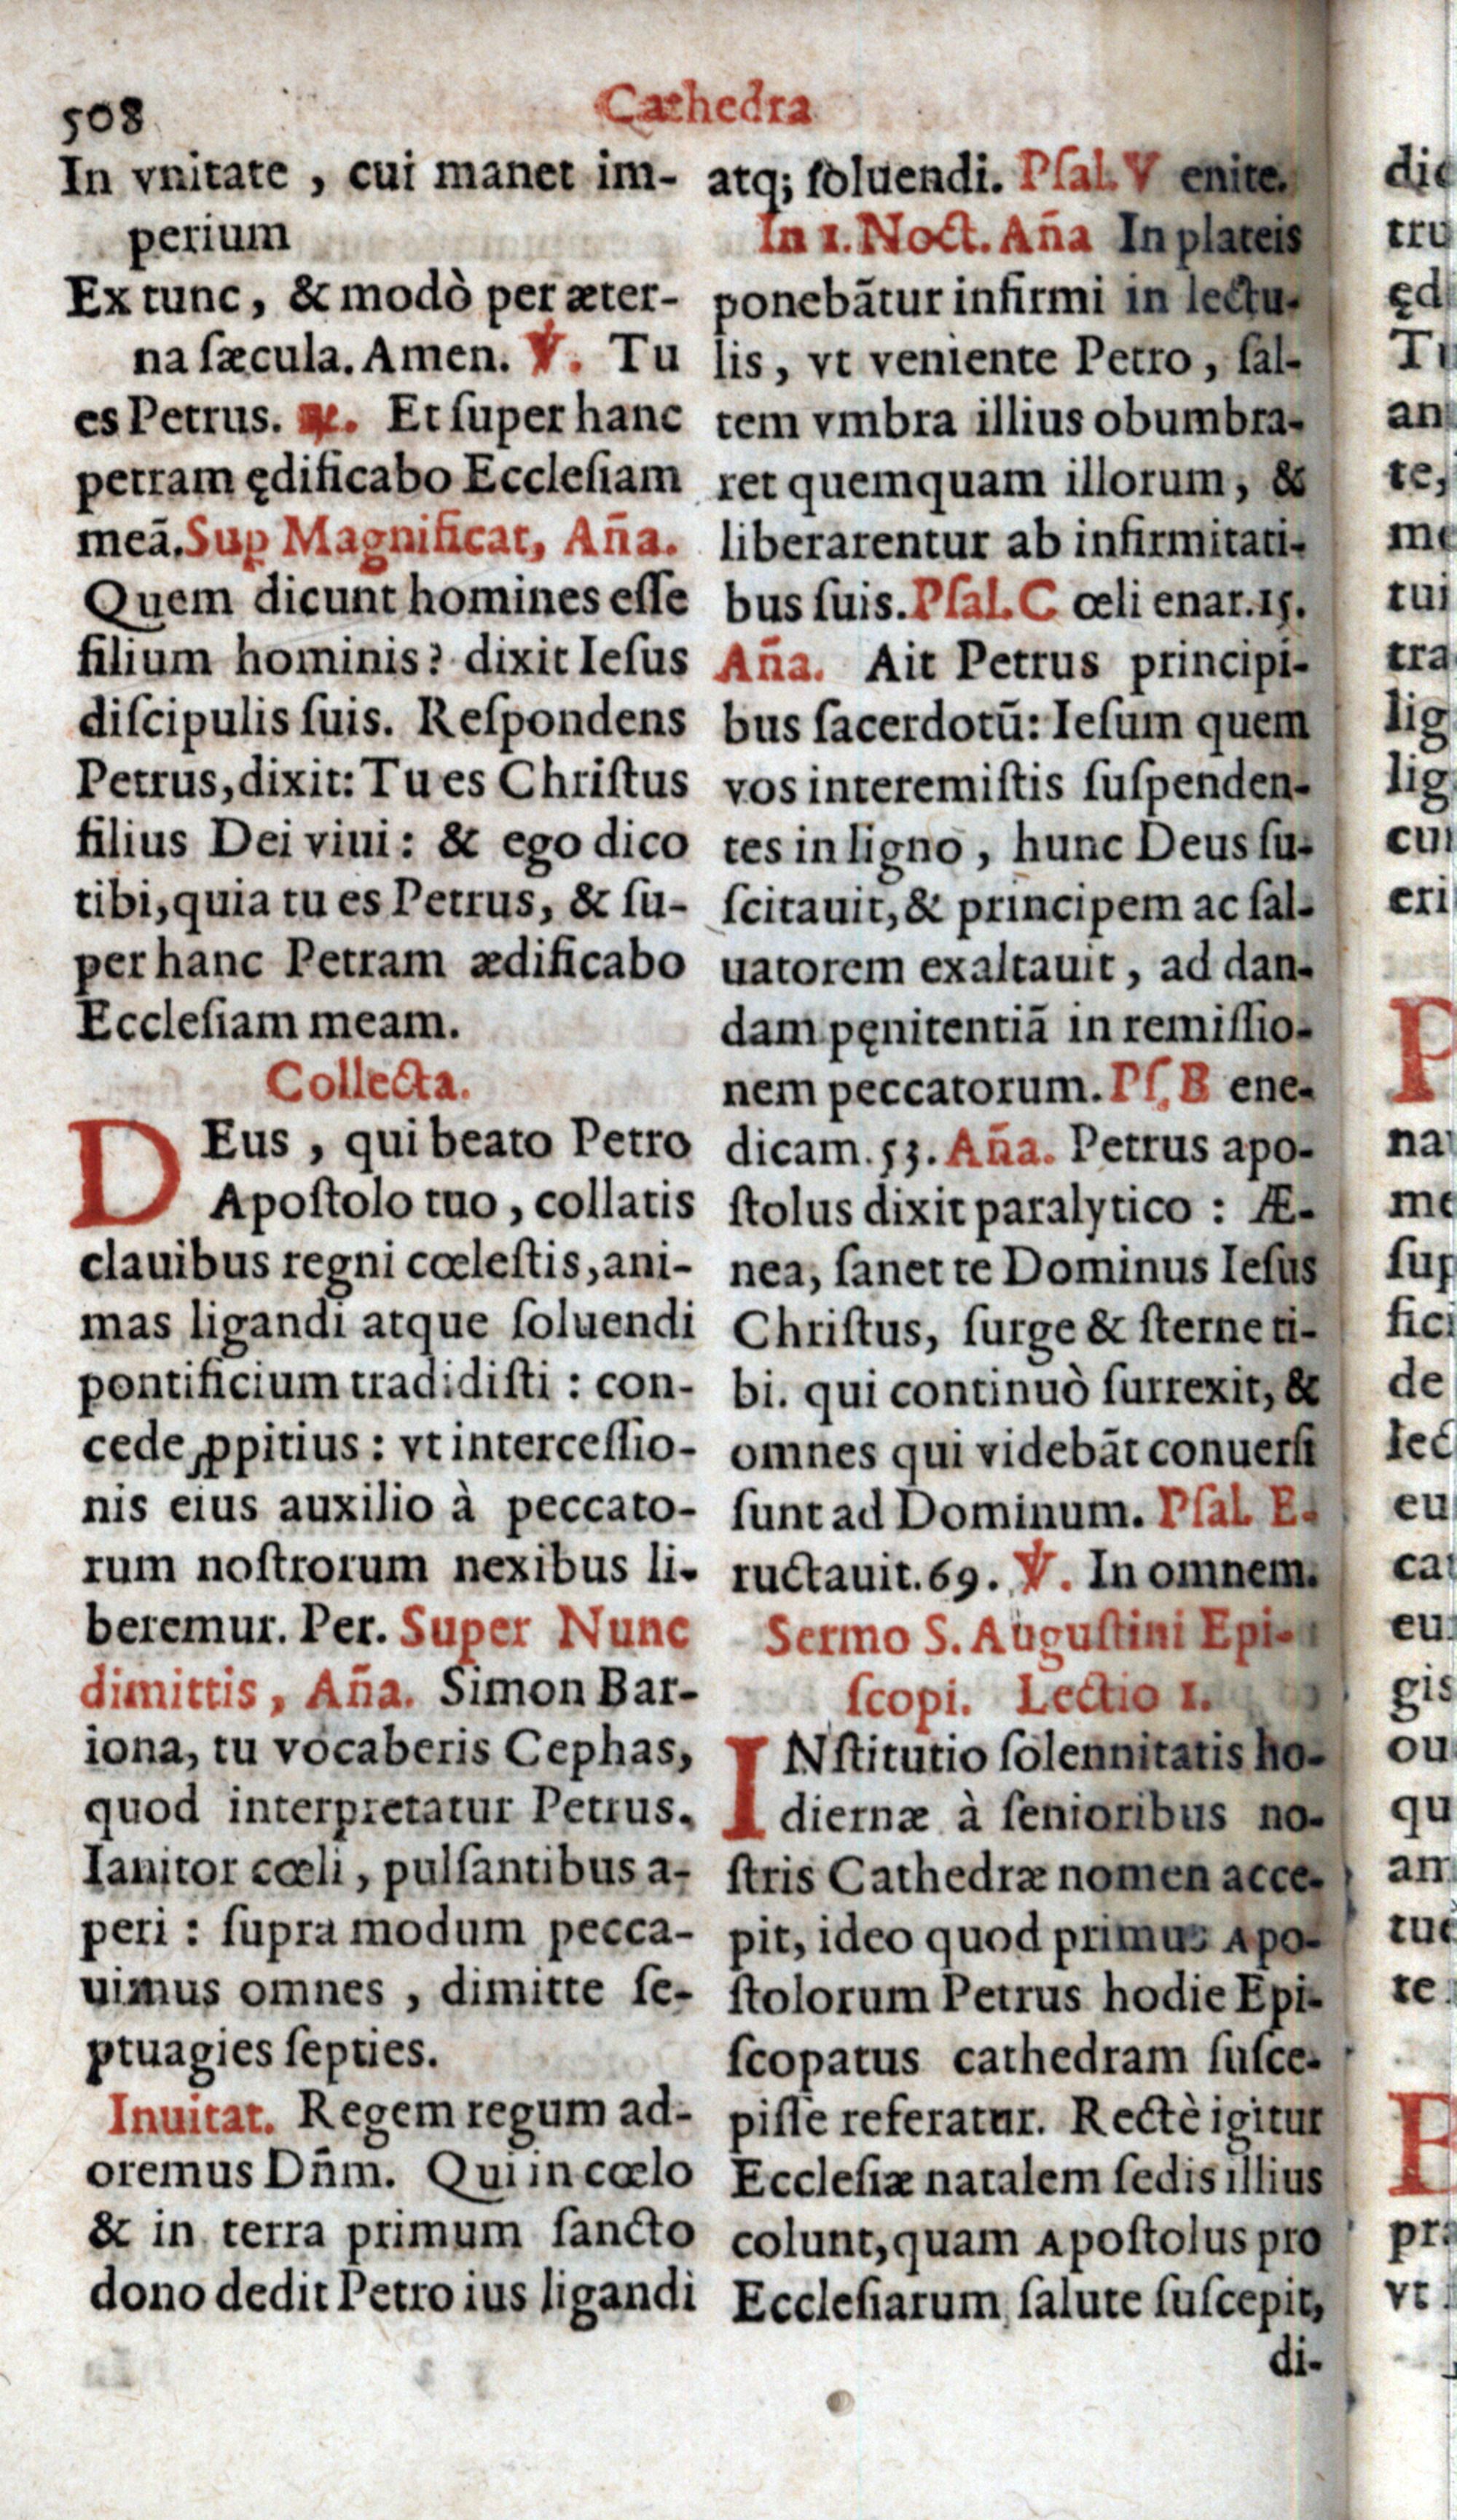 508
Cathedra
In vnitate , cui manet im-
perium
Ex tunc, & modò per æter-
na ſæcula. Amen. ℣. Tu
es Petrus. ℟. Et ſuper hanc
petram ędificabo Eccleſiam
meã. Suꝑ Magnificat, Aña.
Quem dicunt homines eſſe
filium hominis? dixit Ieſus
diſcipulis ſuis. Reſpondens
Petrus, dixit: Tu es Chriſtus
filius Dei viui: & ego dico
tibi, quia tu es Petrus, & ſu-
per hanc Petram ædificabo
Eccleſiam meam.
Collecta.
DEus , qui beato Petro
Apoſtolo tuo , collatis
clauibus regni cœleſtis, ani-
mas ligandi atque ſoluendi
pontificium tradidiſti : con-
cede ꝓpitius : vt interceſſio-
nis eius auxilio à peccato-
rum noſtrorum nexibus li-
beremur. Per. Super Nunc
dimittis , Aña. Simon Bar-
iona, tu vocaberis Cephas,
quod interpretatur Petrus.
Ianitor cœli , pulſantibus a-
peri : ſupra modum pecca-
uimus omnes , dimitte ſe-
ptuagies ſepties.
Inuitat. Regem regum ad-
oremus Dñm. Qui in cœlo
& in terra primum ſancto
dono dedit Petro ius ligandi
atq; ſoluendi. Pſal. V enite.
In 1. Noct. Aña In plateis
ponebãtur infirmi in lectu-
lis , vt veniente Petro , ſal-
tem vmbra illius obumbra-
ret quemquam illorum , &
liberarentur ab infirmitati-
bus ſuis. Pſal. C œli enar. 15.
Aña. Ait Petrus principi-
bus ſacerdotũ: Ieſum quem
vos interemiſtis ſuſpenden-
tes in ligno , hunc Deus ſu-
ſcitauit, & principem ac ſal-
uatorem exaltauit , ad dan-
dam pęnitentiã in remiſſio-
nem peccatorum. Pſ. B ene-
dicam. 53. Aña. Petrus apo-
ſtolus dixit paralytico : Æ-
nea, ſanet te Dominus Ieſus
Chriſtus, ſurge & ſterne ti-
bi. qui continuò ſurrexit, &
omnes qui videbãt conuerſi
ſunt ad Dominum. Pſal. E-
ructauit. 69. ℣. In omnem.
Sermo S. Auguſtini Epi-
ſcopi. Lectio 1.
INſtitutio ſolennitatis ho-
diernæ à ſenioribus no-
ſtris Cathedræ nomen acce-
pit, ideo quod primus Apo-
ſtolorum Petrus hodie Epi-
ſcopatus cathedram ſuſce-
piſſe referatur. Rectè igitur
Eccleſiæ natalem ſedis illius
colunt, quam Apoſtolus pro
Eccleſiarum ſalute ſuſcepit,
di-